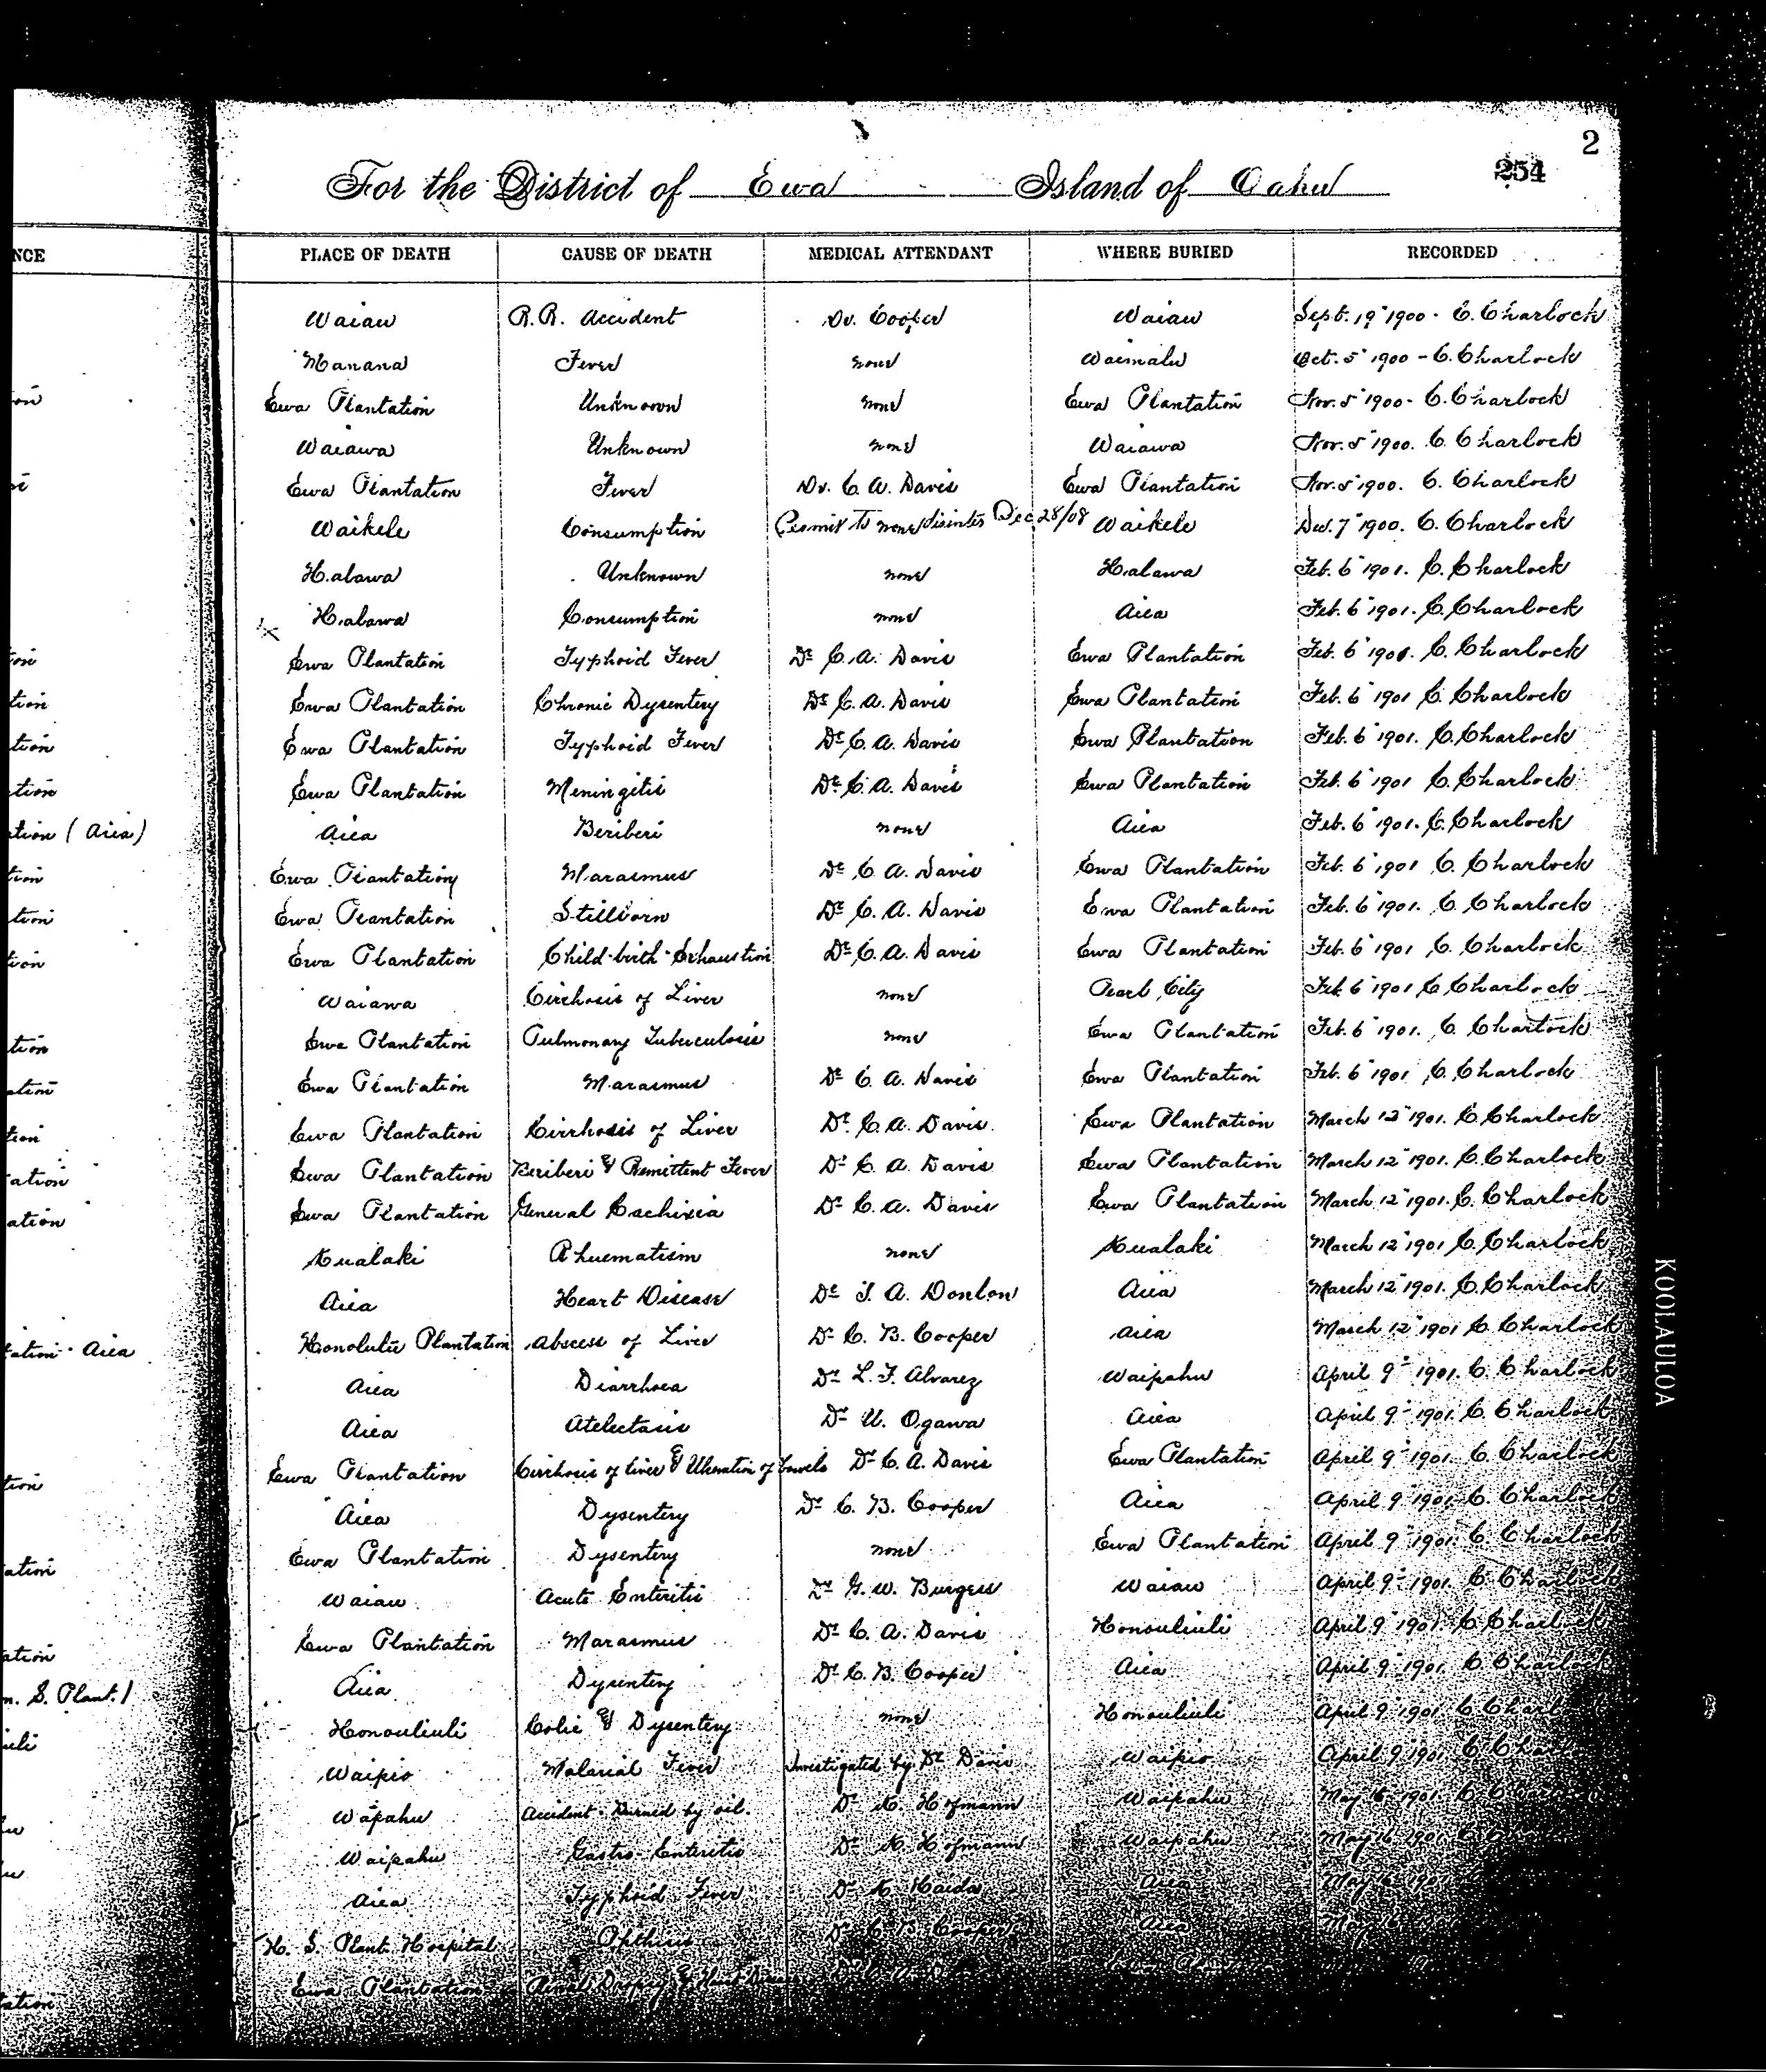 2
254
For the District of Ewa Island of Oahu
NCE PLACE OF DEATH CAUSE OF DEATH MEDICAL ATTENDANT WHERE BURIED RECORDED
Waiau R.R. Accident Dr. Cooper Waiau Sept. 19" 1900 - C. Charlock
Manana Fever none Waimalu Oct. 5" 1900 - C. Charlock
on Ewa Plantation Unknown none Ewa Plantation Nov. 5" 1900 - C. Charlock
Waiawa Unknown none Waiawa Nov. 5" 1900. C. Charlock
Ewa Plantation Fever Dr. C. A. Davis Ewa Plantation Nov. 5" 1900. C. Charlock
Waikele Consumption Permit to none disinter Dec 28/08 Waikele Dec. 7" 1900. C. Charlock
Halawa Unknown none Halawa Feb. 6" 1901. C. Charlock
Halawa Consumption none Aiea Feb. 6" 1901. C. Charlock
ion Ewa Plantation Typhoid Fever Dr C. A. Davis Ewa Plantation Feb. 6" 1901. C. Charlock
tion Ewa Plantation Chronic Dysentery Dr C. A. Davis Ewa Plantation Feb. 6" 1901 C. Charlock
tion Ewa Plantation Typhoid Fever Dr C. A. Davis Ewa Plantation Feb. 6" 1901. C. Charlock
ation Ewa Plantation Meningitis Dr. C. A. Davis Ewa Plantation Feb. 6" 1901 C. Charlock
ation (Aiea) Aiea Beriberi none Aiea Feb. 6" 1901. C. Charlock
tion Ewa Plantation Marasmus Dr C. A. Davis Ewa Plantation Feb. 6" 1901 C. Charlock
tion Ewa Plantation Stillborn Dr C. A. Davis Ewa Plantation Feb. 6" 1901. C. Charlock
tion Ewa Plantation Child-birth - Exhaustion Dr C. A. Davis Ewa Plantation Feb. 6" 1901 C. Charlock
Waiawa Cirrhosis of Liver none Pearl City Feb. 6" 1901 C. Charlock
tion Ewa Plantation Pulmonary Tuberculosis none Ewa Plantation Feb. 6" 1901. C. Charlock
ation Ewa Plantation Marasmus Dr C. A. Davis Ewa Plantation Feb. 6" 1901 C. Charlock
tion Ewa Plantation Cirrhosis of Liver Dr. C. A. Davis. Ewa Plantation March 12" 1901. C. Charlock
ation Ewa Plantation Beriberi & Remittent Fever Dr C. A. Davis Ewa Plantation March 12" 1901. C. Charlock
ation Ewa Plantation General Cachixia Dr C. A. Davis Ewa Plantation March 12" 1901. C. Charlock
Kualaki Rhuematism none Kualaki March 12" 1901 C. Charlock
Aiea Heart Disease Dr T. A. Donlon Aiea March 12" 1901. C. Charlock
tation - Aiea Honolulu Plantation Abscess of Liver Dr C. B. Cooper Aiea March 12" 1901 C. Charlock
Aiea Diarrhoea Dr L. F. Alvarez Waipahu April 9" 1901. C. Charlock
Aiea Atelectasis Dr U. Ogawa Aiea April 9" 1901. C. Charlock
tion Ewa Plantation Cirrhosis of liver & Ulceration of bowels Dr C. A. Davis Ewa Plantation April 9" 1901. C. Charlock
Aiea Dysentery Dr C. B. Cooper Aiea April 9" 1901. C. Charlock
ation Ewa Plantation Dysentery none Ewa Plantation April 9" 1901. C. Charlock
Waiau Acute Enteritis Dr G. W. Burgess Waiau April 9" 1901. C. Charlock
ation Ewa Plantation Marasmus Dr C. A. Davis Honouliuli April 9" 1901. C. Charlock
n. S. Plant.) Aiea Dysentery Dr C. B. Cooper Aiea April 9" 1901. C. Charlock
uli Honouliuli Colic & Dysentery none Honouliuli April 9" 1901. C. Charl
Waipio Malarial Fever Investigated by Dr Davis Waipio April 9" 1901. C. Charl
Wapahu Accident - Burned by oil. Dr K. Hofmann Waipahu May 16" 1901. C.
Waipahu Gastro-Enteritis Dr K. Hofmann Waipahu May 16" 1901. C.
Aiea Typhoid Fever Dr K. Haida Aiea May 16" 1901
H. S. Plant. Hospital Phthisis Dr C. B. Cooper Aiea May 16"
ation Ewa Plantation Dropsy & Heart
KOOLAULOA